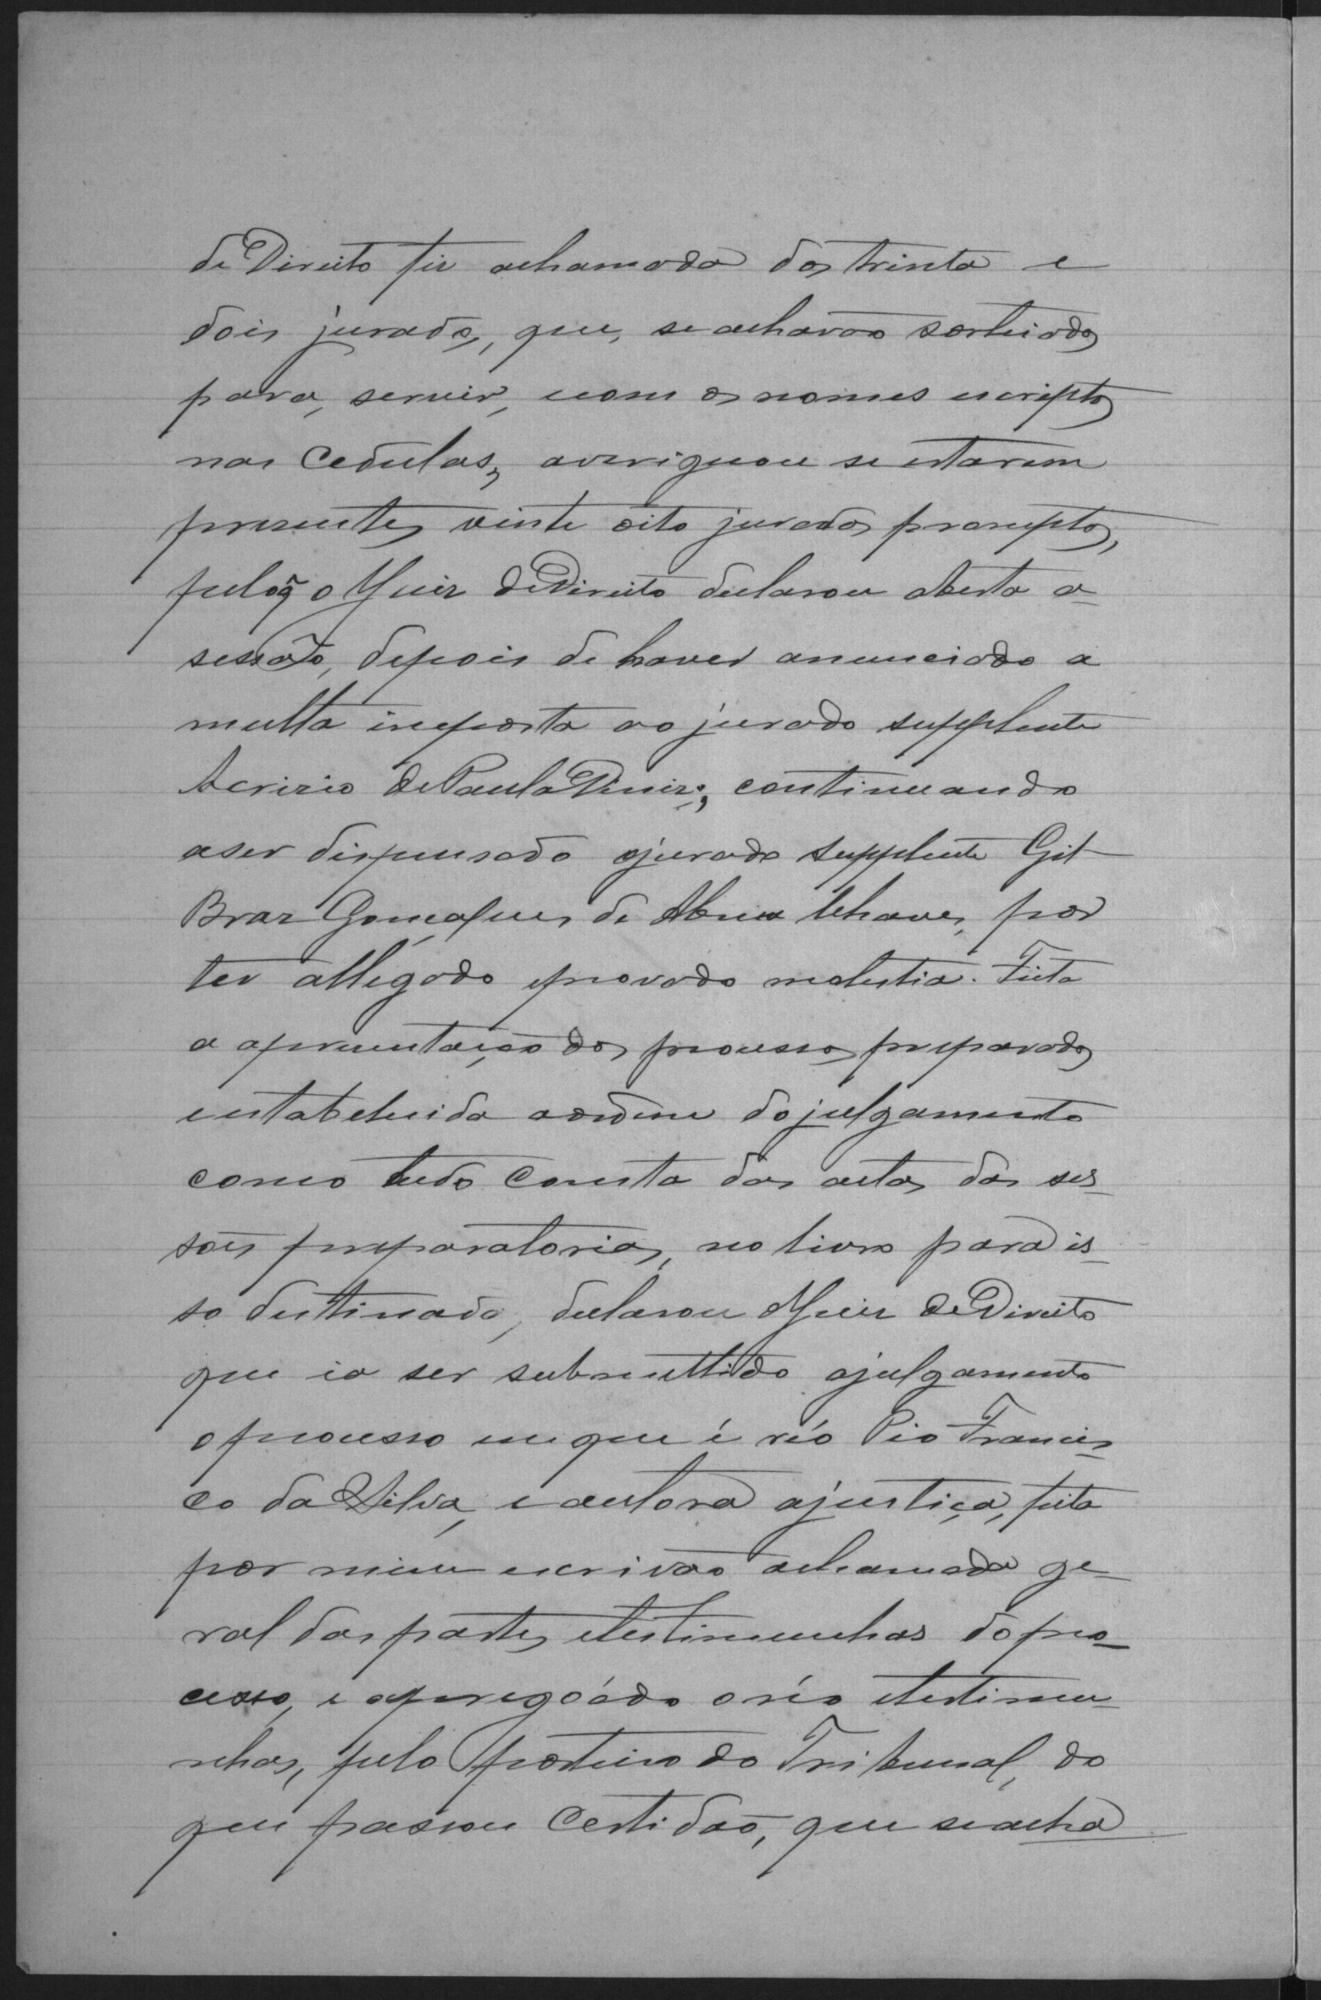 de Direito fez achamada dos trinta e
dois jurados, que, se achavão sorteiados
para, servir, com os nomes escriptos
nas Cedulas, averiguou se estarem
presentes vinte oito jurados promptos,
pelo q̃ o Juiz de Direito declarou aberta a
sessão, depois de haver anunciado a
multa imposta ao jurado supplente
Acrizio de Paula Diniz; continuando
aser dispensado ojurado supplente Gil
Braz Gonçalves de Abreu Chaves, por
ter allegado eprovado molestia. Feita
a aprezentação dos processos preparados
estabelecida aordem do julgamento
como tudo consta das actas das ses-
sões preparatorias, no livro para is-
so destinado, declarou oJuiz de Direito
que ia ser submettido ajulgamento
oprocesso em que é réo Pio Francis-
co da Silva, e autora ajustiça, feita
por mim escrivão achamada ge-
ral das partes etestimunhas do pro-
cesso, e apregoádo oréo etestimu-
nhas, pelo porteiro do Tribunal, do
que passou Certidão, que seacha